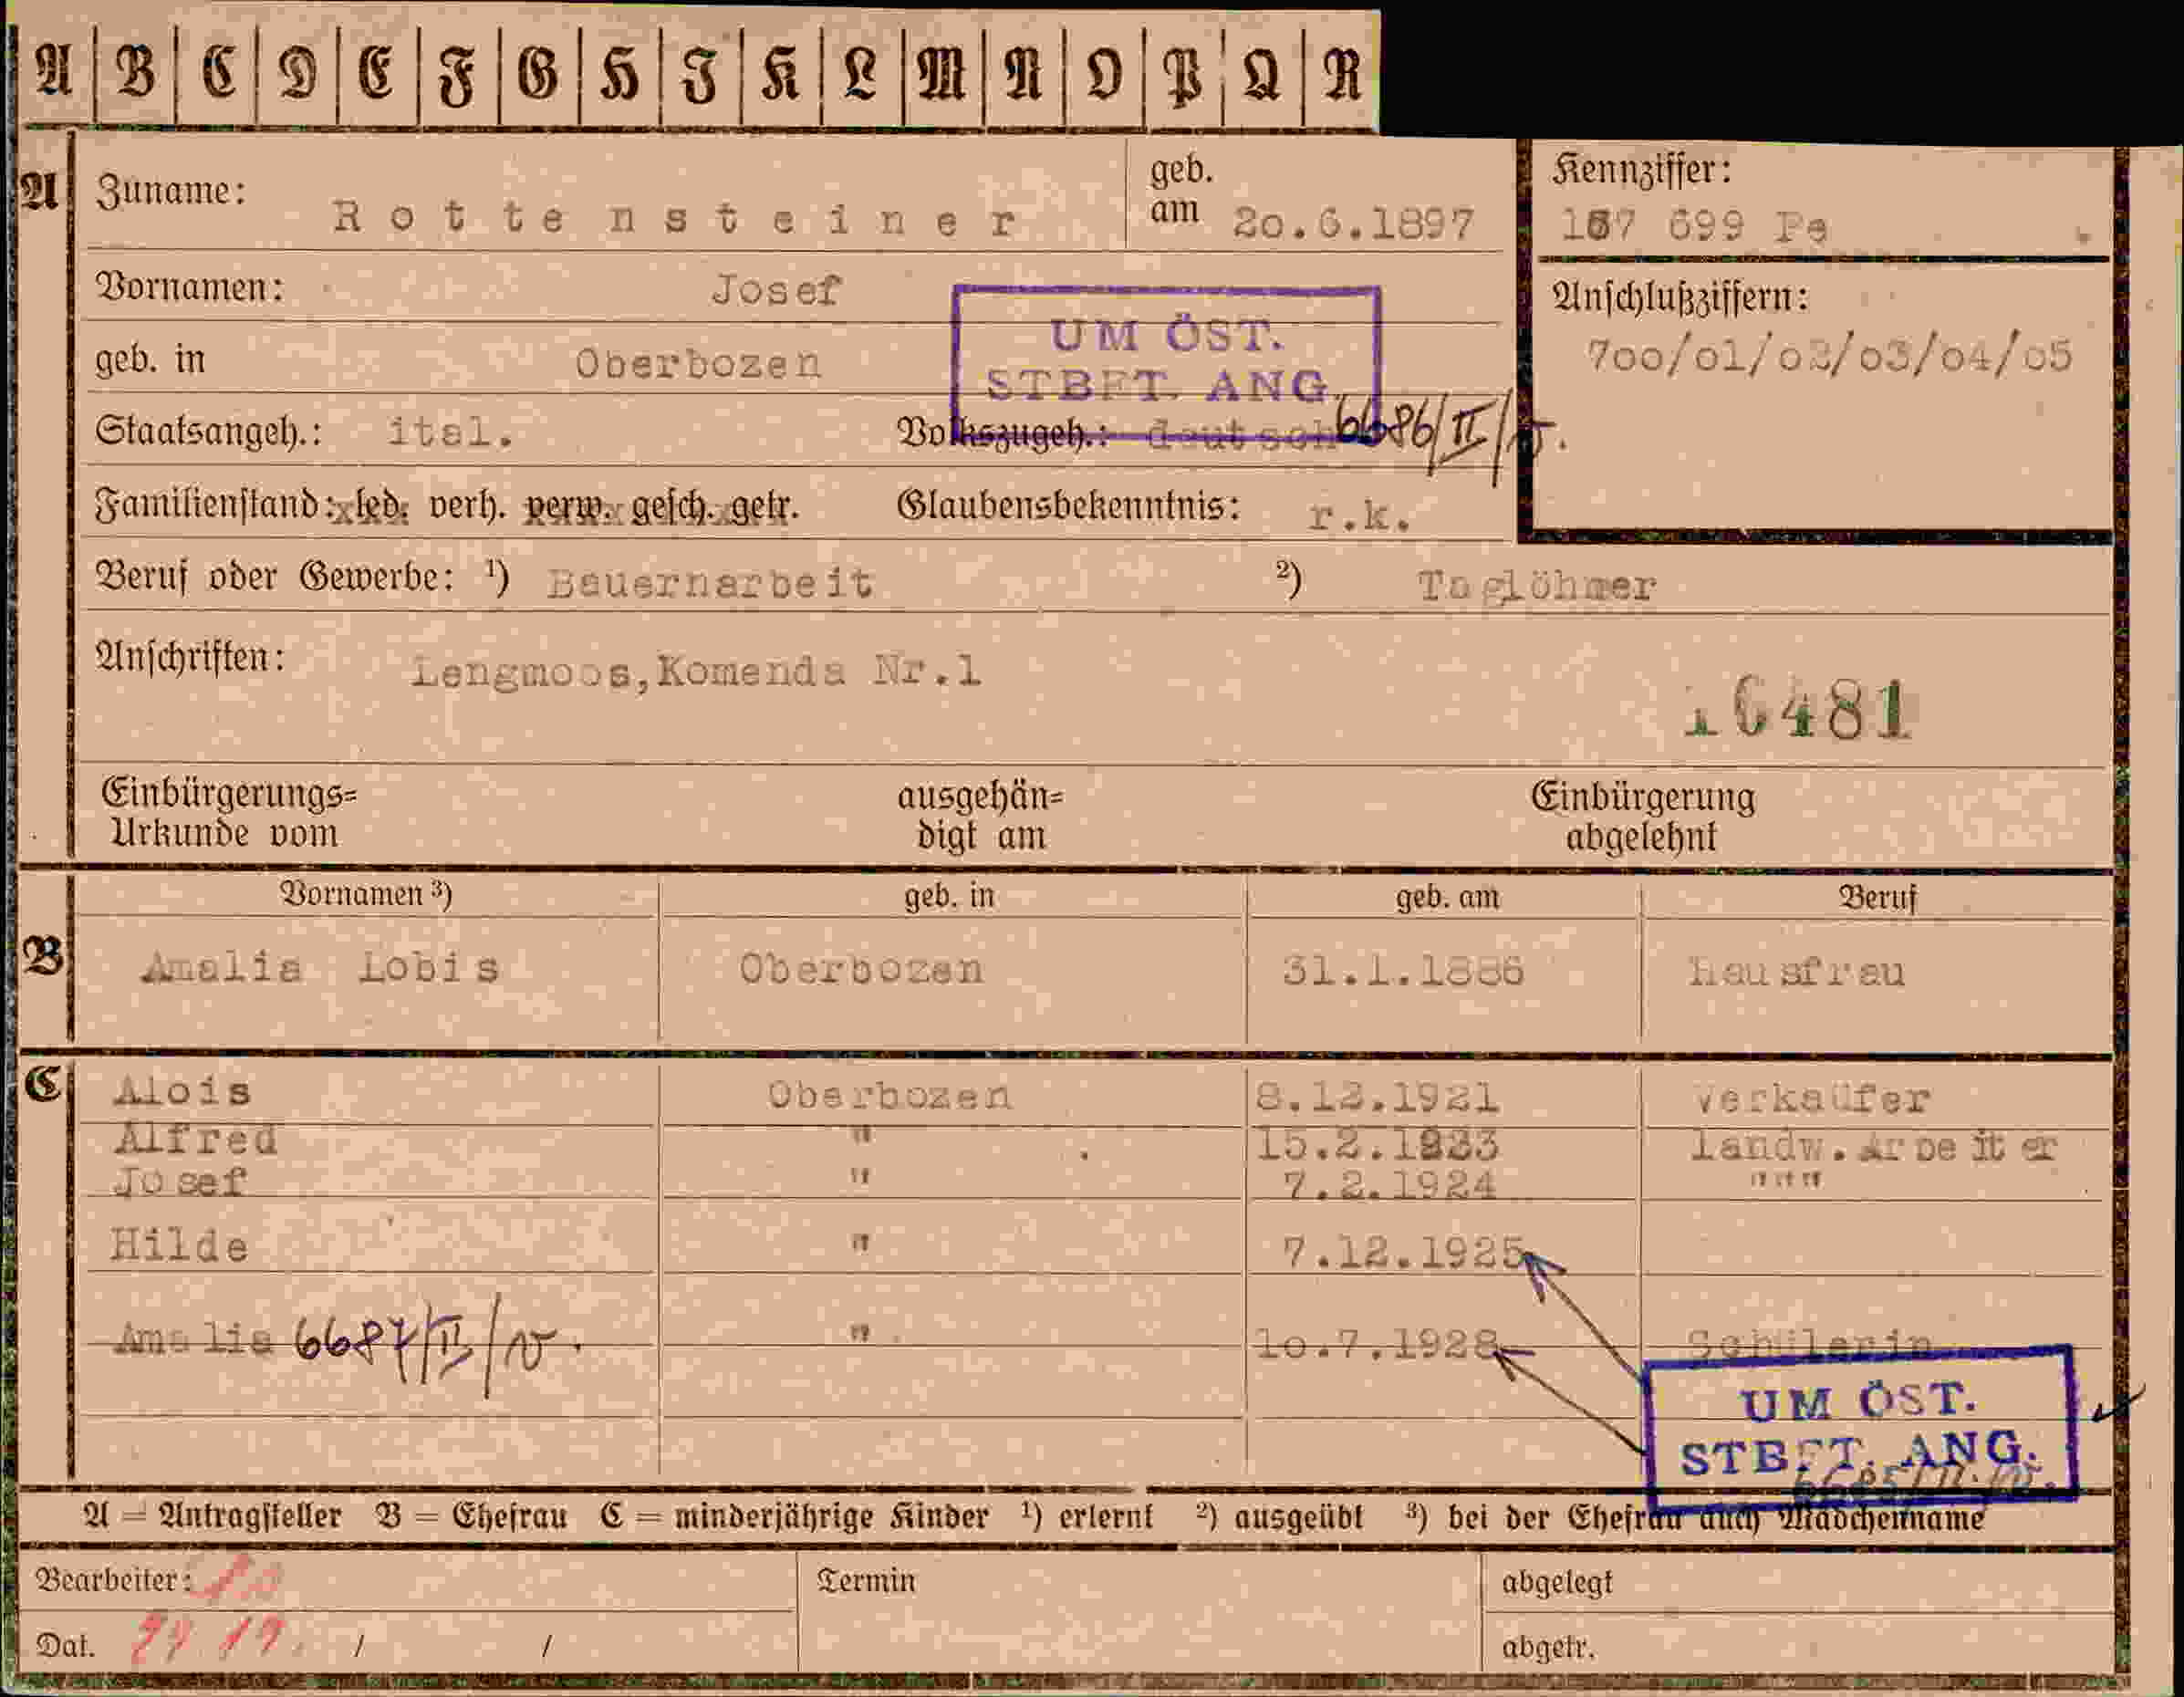 A B C D E F G H J K L M N O P Q R
A Zuname: Rottensteiner geb. am 20.6.1897 Kennziffer: 167 699 Pe
Vornamen: Josef Anschlußziffern:
UM ÖST.
geb. in Oberbozen 700/01/02/03/04/05
STBFT. ANG.
Staatsangeh.: ital. Volkszugeh.: deutsch 6686/II/
Familienstand: led. verh. verw. gesch. getr. Glaubensbekenntnis: r.k.
Beruf oder Gewerbe: ¹) Bauernarbeit ²) Taglöhner
Anschriften: Lengmoos,Komenda Nr.1
16481
Einbürgerungs= ausgehän= Einbürgerung
Urkunde vom digt am abgelehnt
Vornamen ³) geb. in geb. am Beruf
B Amalia Lobis Oberbozen 31.1.1886 Hausfrau
C Alois Oberbozen 8.12.1921 Verkaüfer
Alfred " 15.2.1923 landw.Arbeiter
Josef " 7.2.1924 """"
Hilde " 7.12.1925
Amalie 6687/II/ " 10.7.1928 Schülerin
UM ÖST.
STBFT. ANG.
A = Antragsteller B = Ehefrau C = minderjährige Kinder ¹) erlernt ²) ausgeübt ³) bei der Ehefrau auch Mädchenname
Bearbeiter: Termin abgelegt
Dat. / / abgetr.